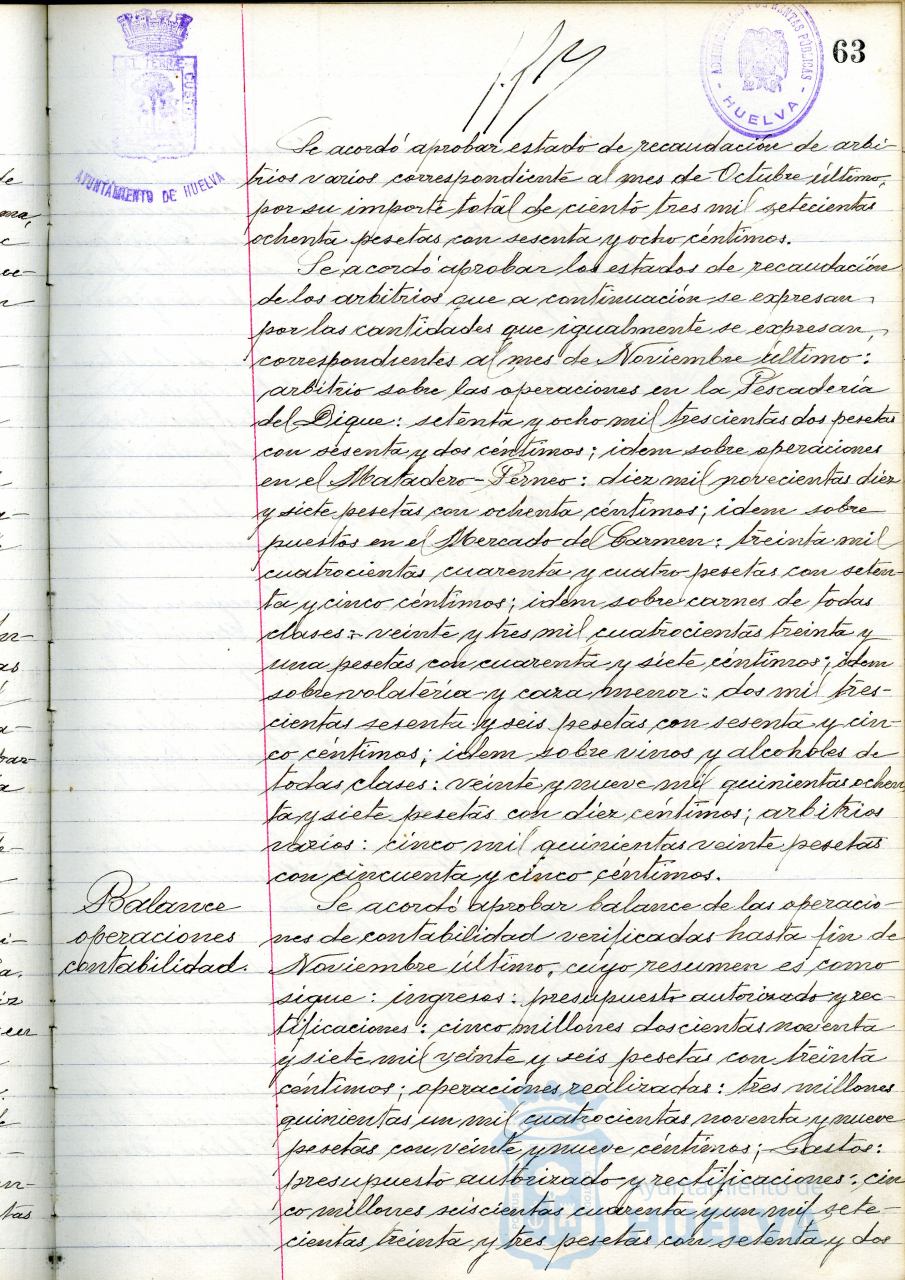 63
AYUNTAMIENTO DE HUELVA
ADMINISTRACION DE RENTAS PÚBLICAS
- HUELVA -
Se acordó aprobar estado de recaudación de arbi-
trios varios correspondiente al mes de Octubre último,
por su importe total de ciento tres mil setecientas
ochenta pesetas con sesenta y ocho céntimos.
Se acordó aprobar los estados de recaudación
de los arbitrios que a continuación se expresan,
por las cantidades que igualmente se expresan,
correspondientes al mes de Noviembre último:
arbitrio sobre las operaciones en la Pescadería
del Dique: setenta y ocho mil trescientas dos pesetas
con sesenta y dos céntimos; idem sobre operaciones
en el Matadero-Ferneo: diez mil novecientas diez
y siete pesetas con ochenta céntimos; idem sobre
puestos en el Mercado del Carmen: treinta mil
cuatrocientas cuarenta y cuatro pesetas con seten-
ta y cinco céntimos; idem sobre carnes de todas
clases: veinte y tres mil cuatrocientas treinta y
una pesetas con cuarenta y siete céntimos; idem
sobre volatería y caza menor: dos mil tres-
cientas sesenta y seis pesetas con sesenta y cin-
co céntimos; idem sobre vinos y alcoholes de
todas clases: veinte y nueve mil quinientas ochen
ta y siete pesetas con diez céntimos; arbitrios
varios: cinco mil quinientas veinte pesetas
con cincuenta y cinco céntimos.
Balance
operaciones
contabilidad.
Se acordó aprobar balance de las operacio-
nes de contabilidad verificadas hasta fin de
Noviembre último, cuyo resumen es como
sigue: ingresos: presupuesto autorizado y rec-
tificaciones: cinco millones doscientas noventa
y siete mil veinte y seis pesetas con treinta
céntimos; operaciones realizadas: tres millones
quinientas un mil cuatrocientas noventa y nueve
pesetas con veinte y nueve céntimos; Gastos:
presupuesto autorizado y rectificaciones: cin
co millones seiscientas cuarenta y un mil sete-
cientas treinta y tres pesetas con setenta y dos
Ayuntamiento de
HUELVA